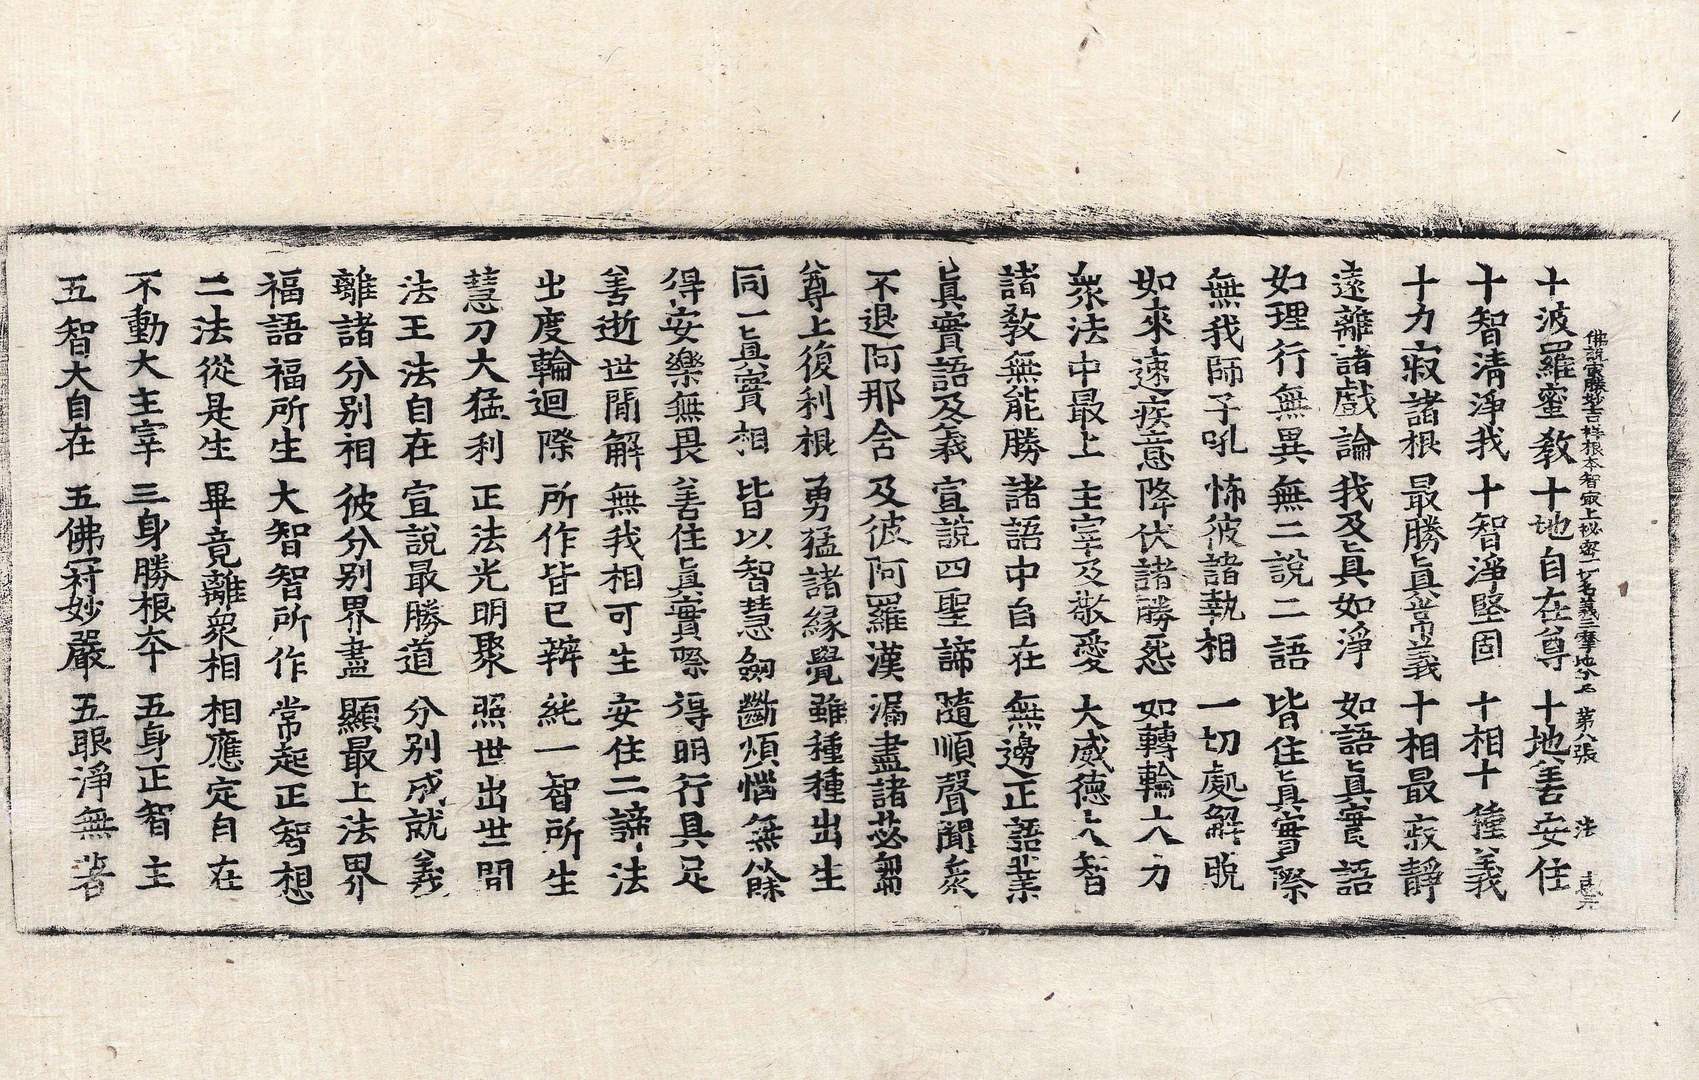 佛說最勝妙吉祥根本智最上祕密一切名義三摩地分上 第八張 法
十波羅蜜教 十地自在尊 十地善安住
十智清淨我 十智淨堅固 十相十種義
十力寂諸根 最勝眞常義 十相最寂靜
遠離諸戲論 我及眞如淨 如語眞實語
如理行無異 無二說二語 皆住眞實際
無我師子吼 怖彼諸執相 一切處解脫
如來速疾意 降伏諸勝怨 如轉輪大力
衆法中最上 主宰及敬愛 大威德大智
諸教無能勝 諸語中自在 無邊正語業
眞實語及義 宣說四聖諦 隨順聲聞衆
不退阿那含 及彼阿羅漢 漏盡諸苾芻
尊上復利根 勇猛諸緣覺 雖種種出生
同一眞實相 皆以智慧劍 斷煩惱無餘
得安樂無畏 善住眞實際 得明行具足
善逝世間解 無我相可生 安住二諦法
出度輪迴際 所作皆已辦 純一智所生
慧刀大猛利 正法光明聚 照世出世間
法王法自在 宣說最勝道 分別成就義
離諸分別相 彼分別界盡 顯最上法界
福語福所生 大智智所作 常起正智想
二法從是生 畢竟離衆相 相應定自在
不動大主宰 三身勝根本 五身正智主
五智大自在 五佛冠妙嚴 五眼淨無著